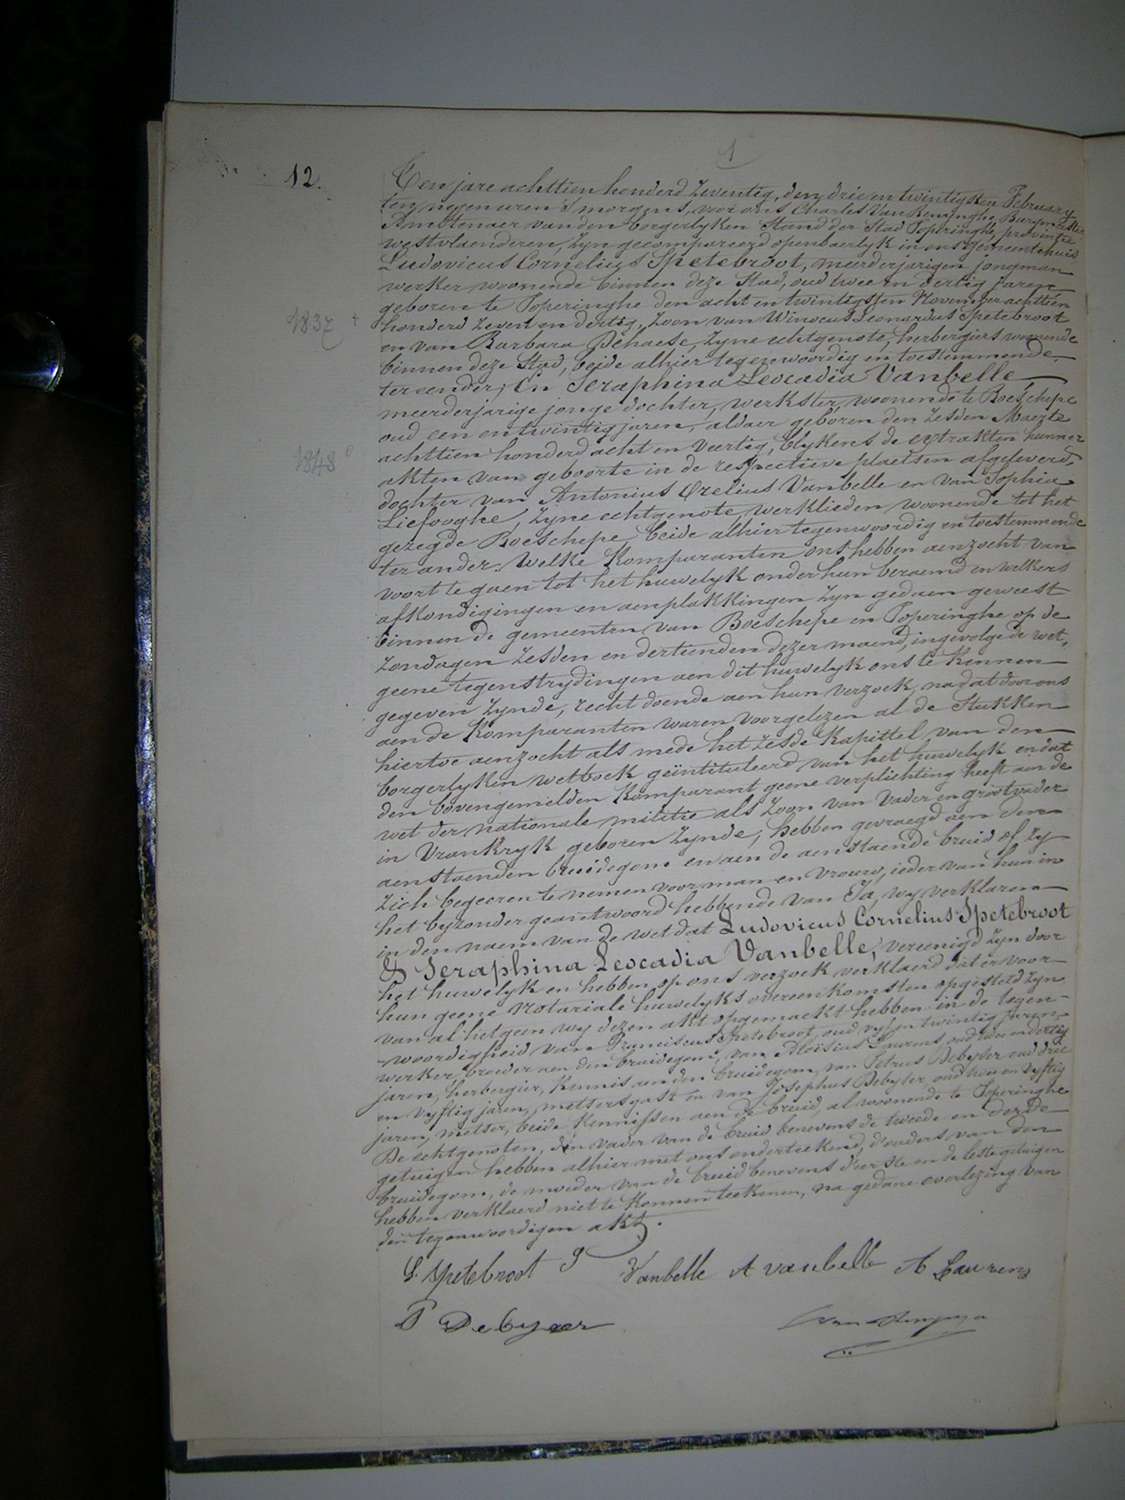 1
12.
Ten jare achttien honderd zeventig, den drie en twintigsten February
ten negen uren 's morgens, voor ons Charles Van Renynghe, Burgmeester
Ambtenaer van den borgerlyken Stand der Stad Poperinghe, provintie
westvlaenderen, zyn gecompareerd openbaerlyk in ons gemeentehuis
Ludovicus Cornelius Spetebroot, meerderjarigen jongman
werker woonende binnen deze Stad, oud twee en dertig jaren
geboren te Poperinghe den acht en twintigsten November achttien
1837 +
honderd zeven en dertig, zoon van Winocus Leonardus Spetebroot
en van Barbara Dehaese, zyne echtgenote, herbergiers woonende
binnen deze Stad, beide alhier tegenwoordig en toestemmende
ter eender, En Seraphina Leocadia Vanbelle
meerderjarige jonge dochter, werkster, woonende te Boeschepe
oud een en twintig jaren, aldaer geboren den zesden Maerte
1848
achttien honderd acht en veertig, blykens de extrakten hunner
akten van geboorte in de respectieve plaetsen afgeleverd,
dochter van Antonius Orelius Vanbelle en van Sophia
Liefooghe, zyne echtgenote werklieden woonende tot het
gezegde Boeschepe, beide alhier tegenwoordig en toestemmende
ter ander. Welke Komparanten ons hebben aenzocht van
voort te gaen tot het huwelyk onder hun beraemd en welkers
afkondigingen en aenplakkingen zyn gedaen geweest
binnen de gemeenten van Boeschepe en Poperinghe op de
zondagen zesden en dertienden dezer maend, ingevolge de wet,
geene tegenstrydingen aen dit huwelyk ons te kennen
gegeven zynde, recht doende aen hun verzoek, nadat door ons
aen de Komparanten waren voorgelezen al de Stukken
hiertoe aenzocht als mede het zesde Kapittel van den
borgerlyken wetboek geïntituleerd van het huwelyk en dat
den bovengemelden Komparant geene verplichting heeft aen de
wet der nationale militie als zoon van Vader en grootvader
in Vrankryk geboren zynde, hebben gevraegd aen den
aenstaenden bruidegom en aen de aenstaende bruid of zy
zich begeeren te nemen voor man en vrouw, ieder van hun in
het byzonder geantwoord hebbende van Ja, wy verklaren
in den naem van de wet dat Ludovicus Cornelius Spetebroot
& Seraphina Leocadia Vanbelle, vereenigd zyn door
het huwelyk en hebben op ons verzoek verklaerd dat er voor
hun geene Notariale huwelyks overeenkomsten opgesteld zyn
van al het geen wy dezen akt opgemaekt hebben in de tegen-
woordigheid van Franciscus Spetebroot, oud vyf en twintig jaren,
werker, broeder aen den bruidegom, van Aloïsius Laurens oud twee en dertig
jaren, herbergier, Kennis aen den bruidegom, van Petrus Debyser oud drie
en vyftig jaren, metsersgast en van Josephus Debyser oud twee en vyftig
jaren, metser, beide Kennissen aen de bruid, al woonende te Poperinghe
De echtgenoten, den vader van de bruid benevens de tweede en derde
getuigen hebben alhier met ons onderteekend, d'ouders van den
bruidegom, de moeder van de bruid benevens d'eerste en de leste getuigen
hebben verklaerd niet te Konnen teekenen, na gedane overlezing van
den tegenwoordigen akt.
L. Spetebroot S Vanbelle A vanbelle A Laurens
P Debyser